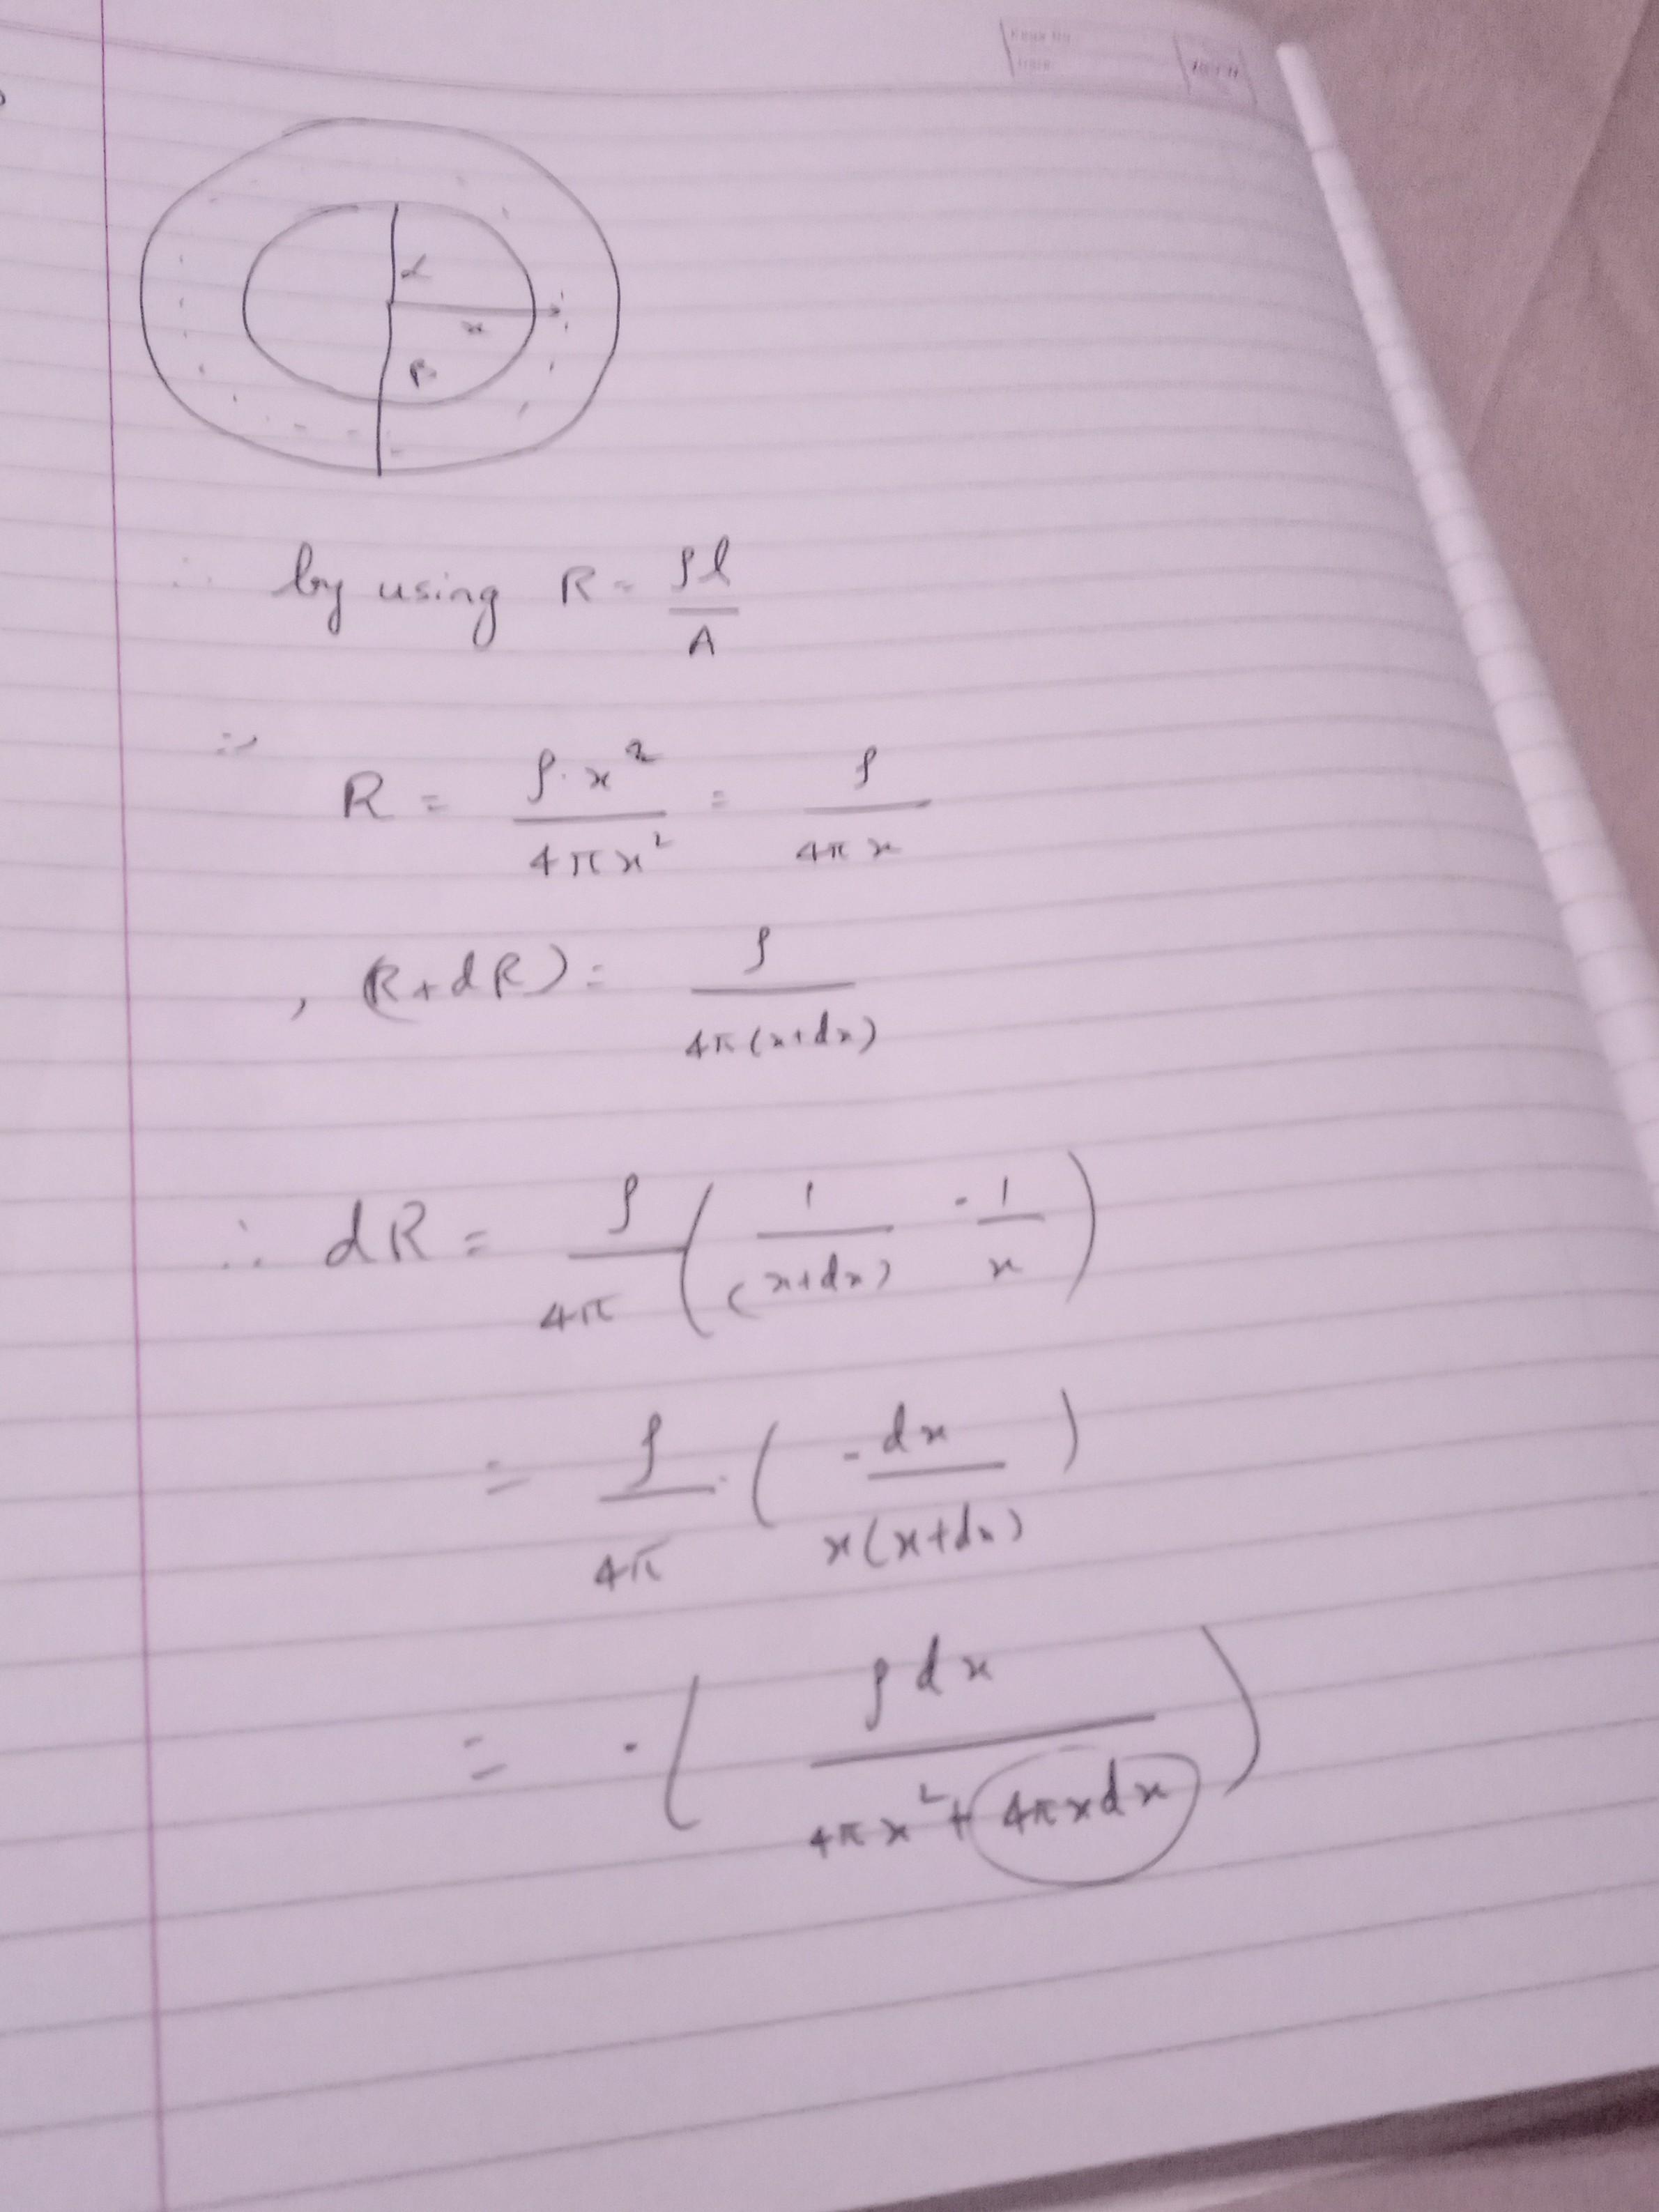 α
x
β
∴ by using R = ρl/A
∴ R = ρ·x²/4πx² = ρ/4πx
, (R+dR) = ρ/4π(x+dx)
∴ dR = ρ/4π (1/(x+dx) - 1/x)
= ρ/4π · (-dx/x(x+dx))
= -(ρdx/4πx²+4πxdx)